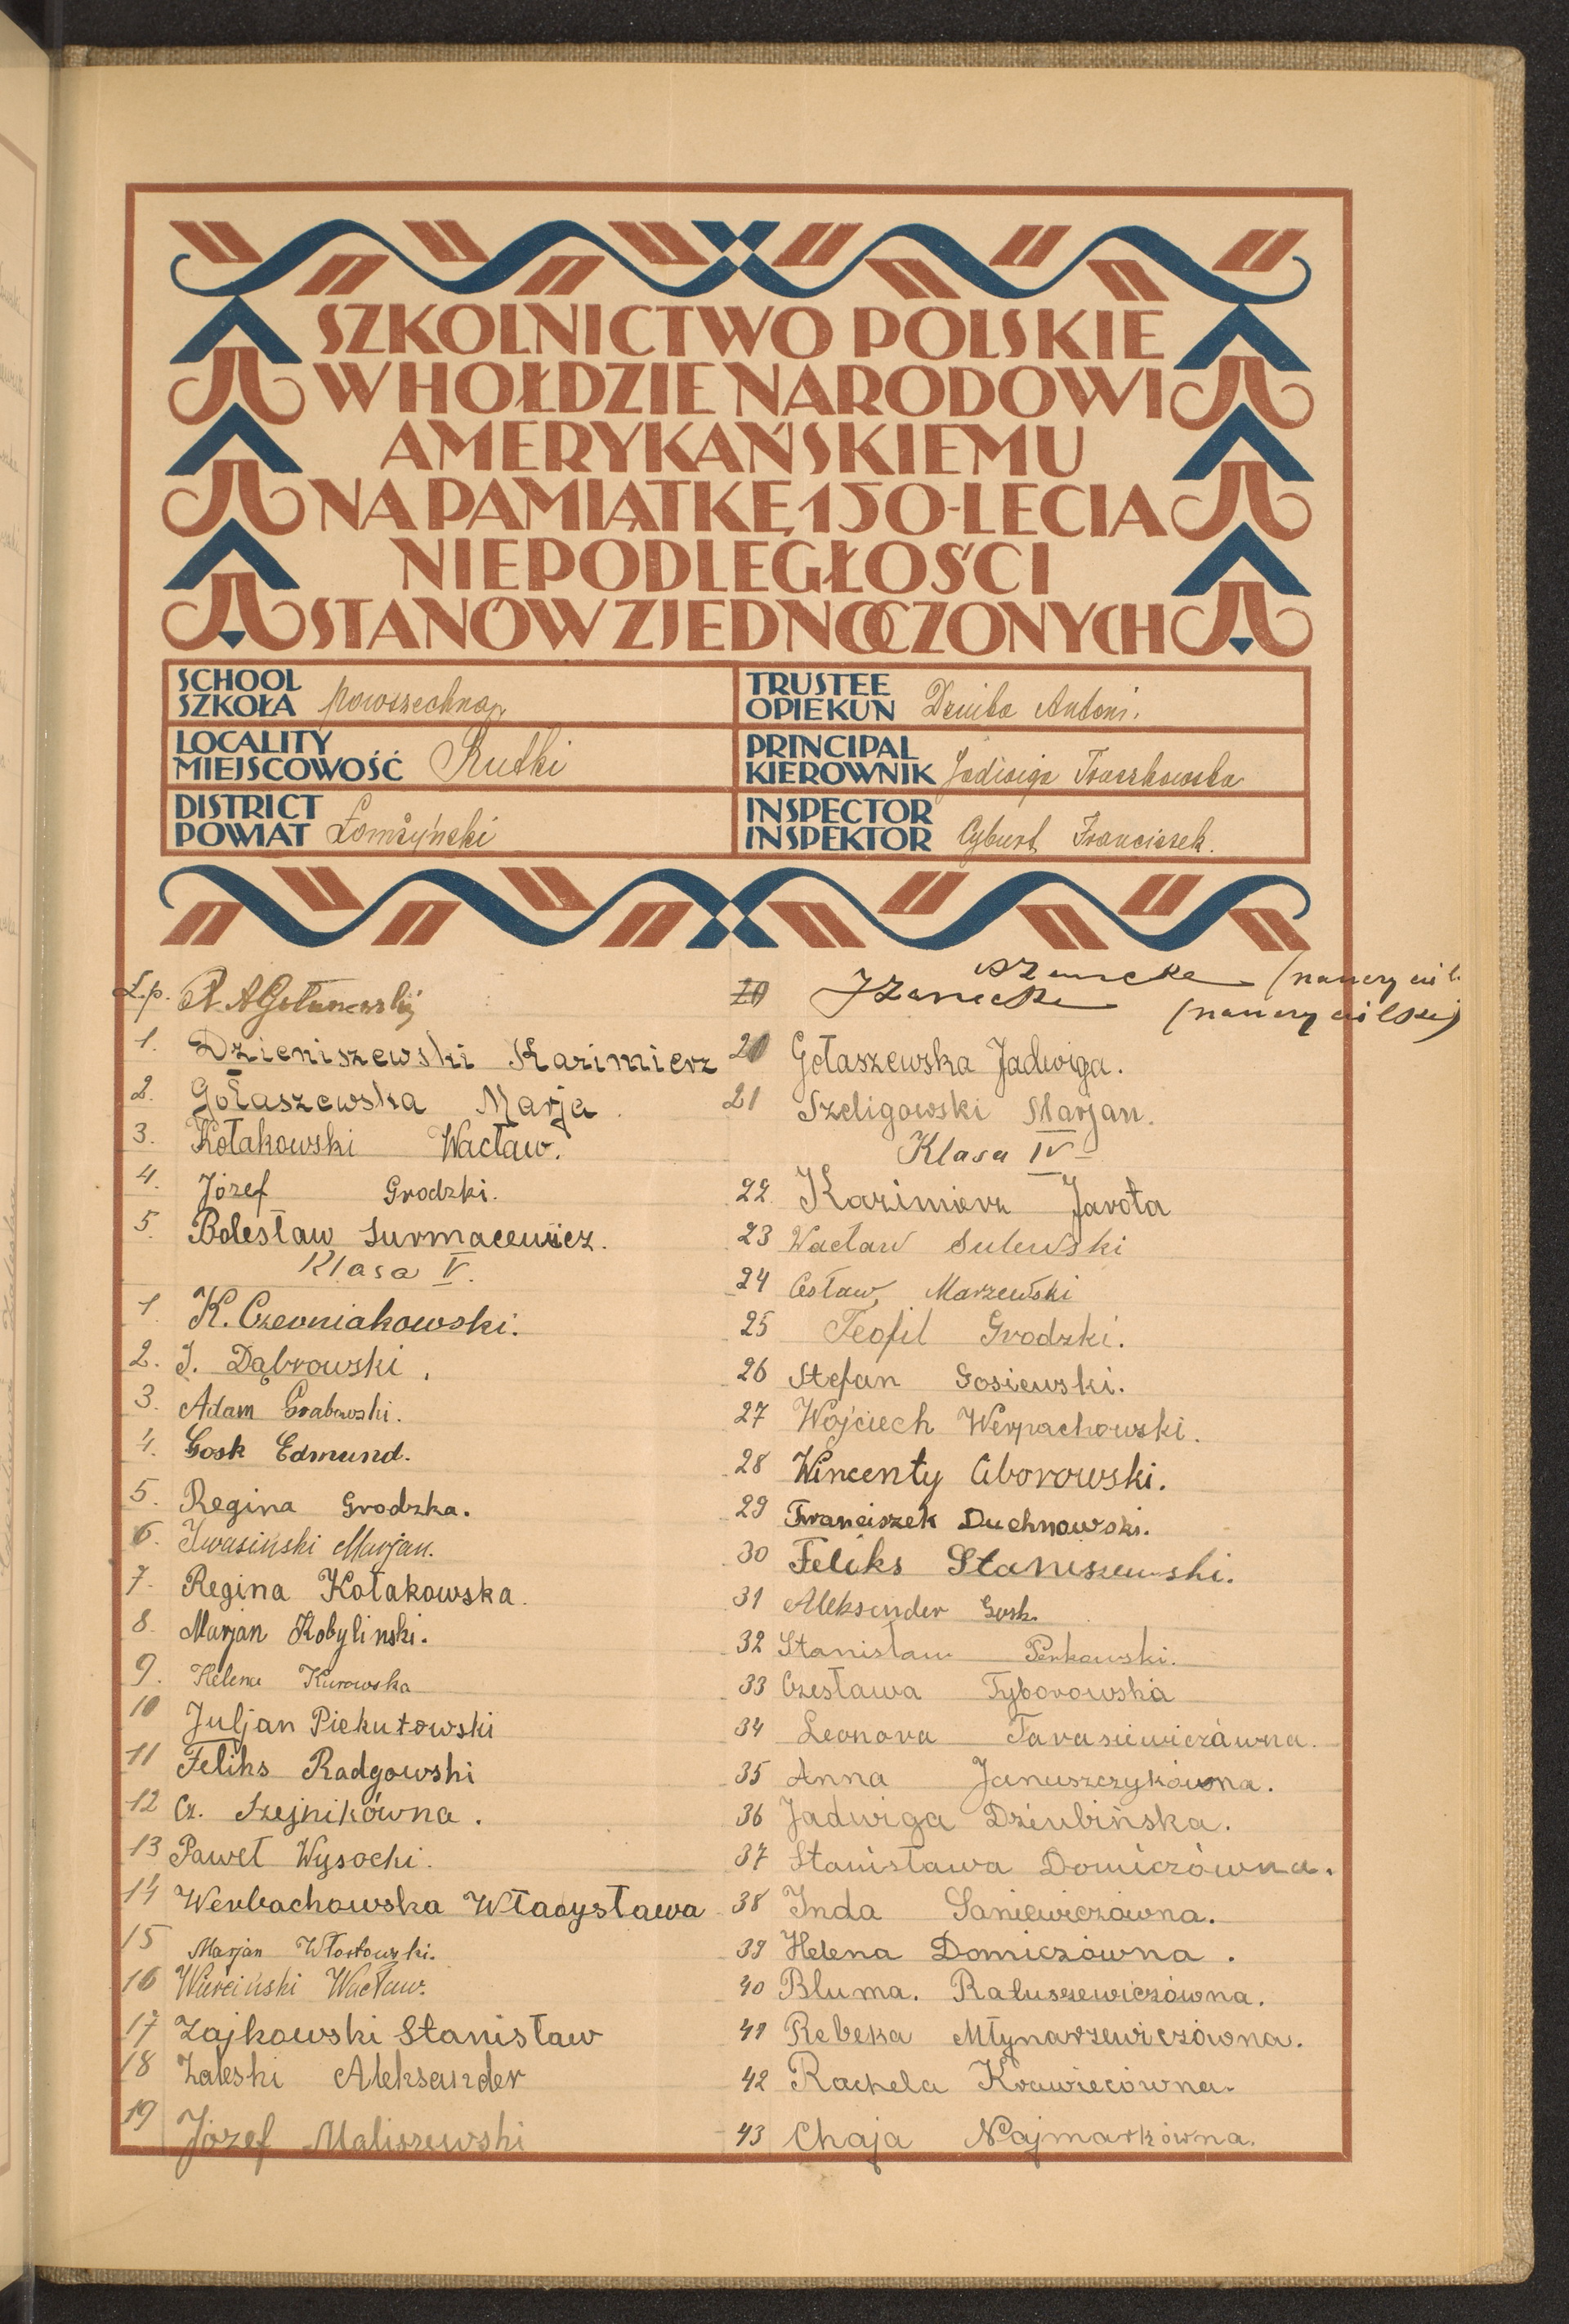 SZKOLNICTWO POLSKIE
W HOŁDZIE NARODOWI
AMERYKAŃSKIEMU
NA PAMIĄTKĘ 150-LECIA
NIEPODLEGŁOŚCI
STANÓW ZJEDNOCZONYCH
SCHOOL
SZKOŁA powszechna
LOCALITY
MIEJSCOWOŚĆ Rutki
DISTRICT
POWIAT Łomżyński
TRUSTEE
OPIEKUN Dziuba Antoni.
PRINCIPAL
KIEROWNIK Jadwiga
INSPECTOR
INSPEKTOR Cybart Franciszek.
L.p.
1. Dzieniszewski Kazimierz
2. Gołaszewska Marja.
3. Kołakowski Wacław.
4. Józef Grodzki.
5. Bolesław Surmacewicz.
Klasa V.
1. K. Czerniakowski.
2. J. Dąbrowski.
3. Adam Grabowski.
4. Gosk Edmund.
5. Regina Grodzka.
6. Iwasiński Marjan.
7. Regina Kołakowska.
8. Marjan Kobylinski.
9. Helena Kurowska
10 Juljan Piekutowski
11 Feliks Radgowski
12 Cz. Szejnikówna.
13 Paweł Wysocki.
14 Werbachowska Władysława
15 Marjan Włostowski.
16 Wierciński Wacław.
17 Zajkowski Stanisław
18 Zaleski Aleksander
19 Józef Maliszewski
20
20 Gołaszewska Jadwiga.
21 Szeligowski Marjan.
Klasa IV
22 Kazimierz Jarota
23 Wacław Sulewski
24 Cesław Marzewski
25 Teofil Grodzki.
26 Stefan Gosiewski.
27 Wojciech Werpachowski.
28 Wincenty Ciborowski.
29 Franciszek Duchnowski.
30 Feliks Staniszewski.
31 Aleksander Gosk.
32 Stanisław Penkowski.
33 Czesława Tyborowska
34 Leonora Tarasiewiczówna.
35 Anna Januszczykówna.
36 Jadwiga Dziubińska.
37 Stanisława Domiczówna.
38 Inda Saniewiczówna.
39 Helena Domiczówna.
40 Bluma. Ratuszewiczówna.
41 Rebeka Młynarzewiczówna.
42 Rachela Krawiecówna.
43 Chaja Najmarkówna.